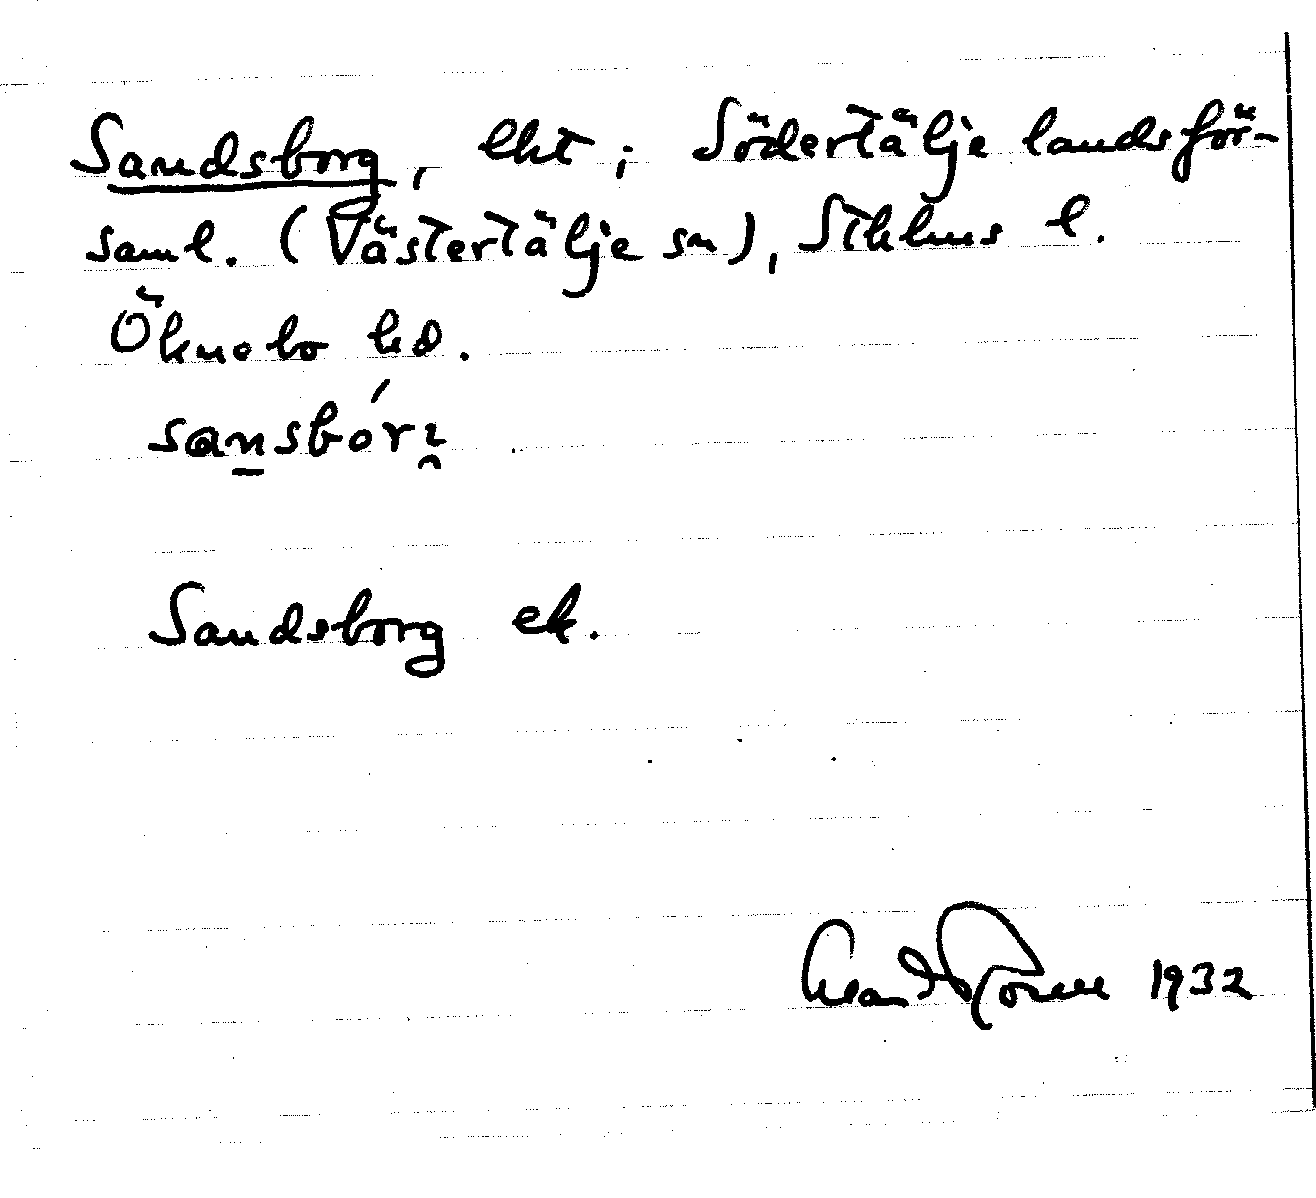 Sandsborg, lht; Södertälje landsför-
saml. (Västertälje sn), Sthlms l.
Öknebo hd.
Sandsborg ek.
1932